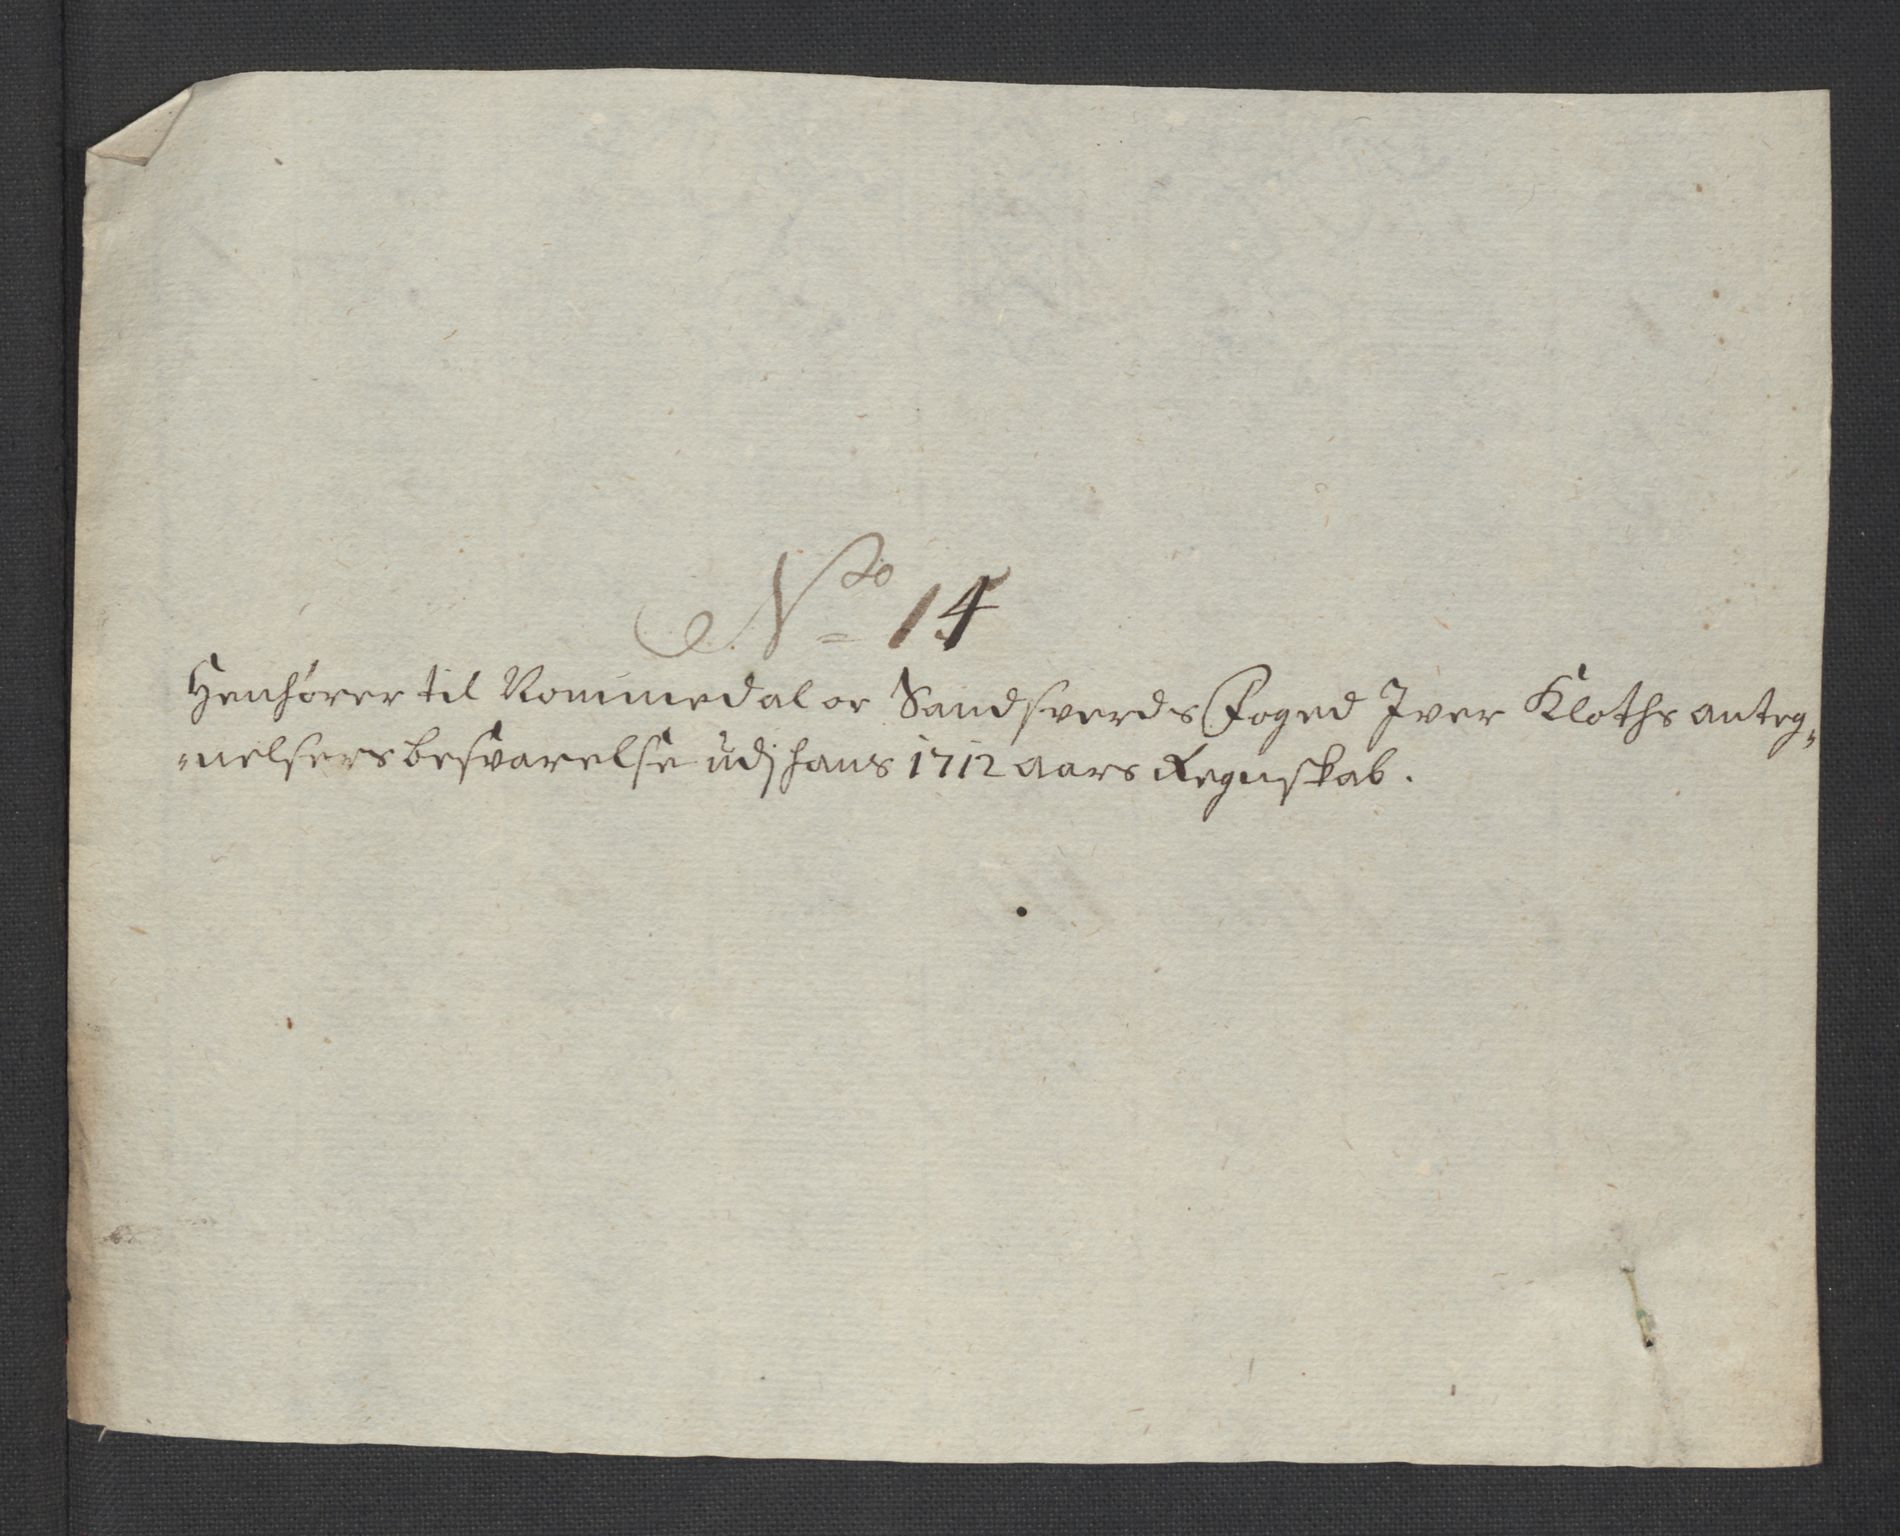 No 14
Henhörer til Nommedal oc Sandsverds Foged Iver Kloths anteg„
„nelsers besvarelse udj hans 1712 aars Regnskab.